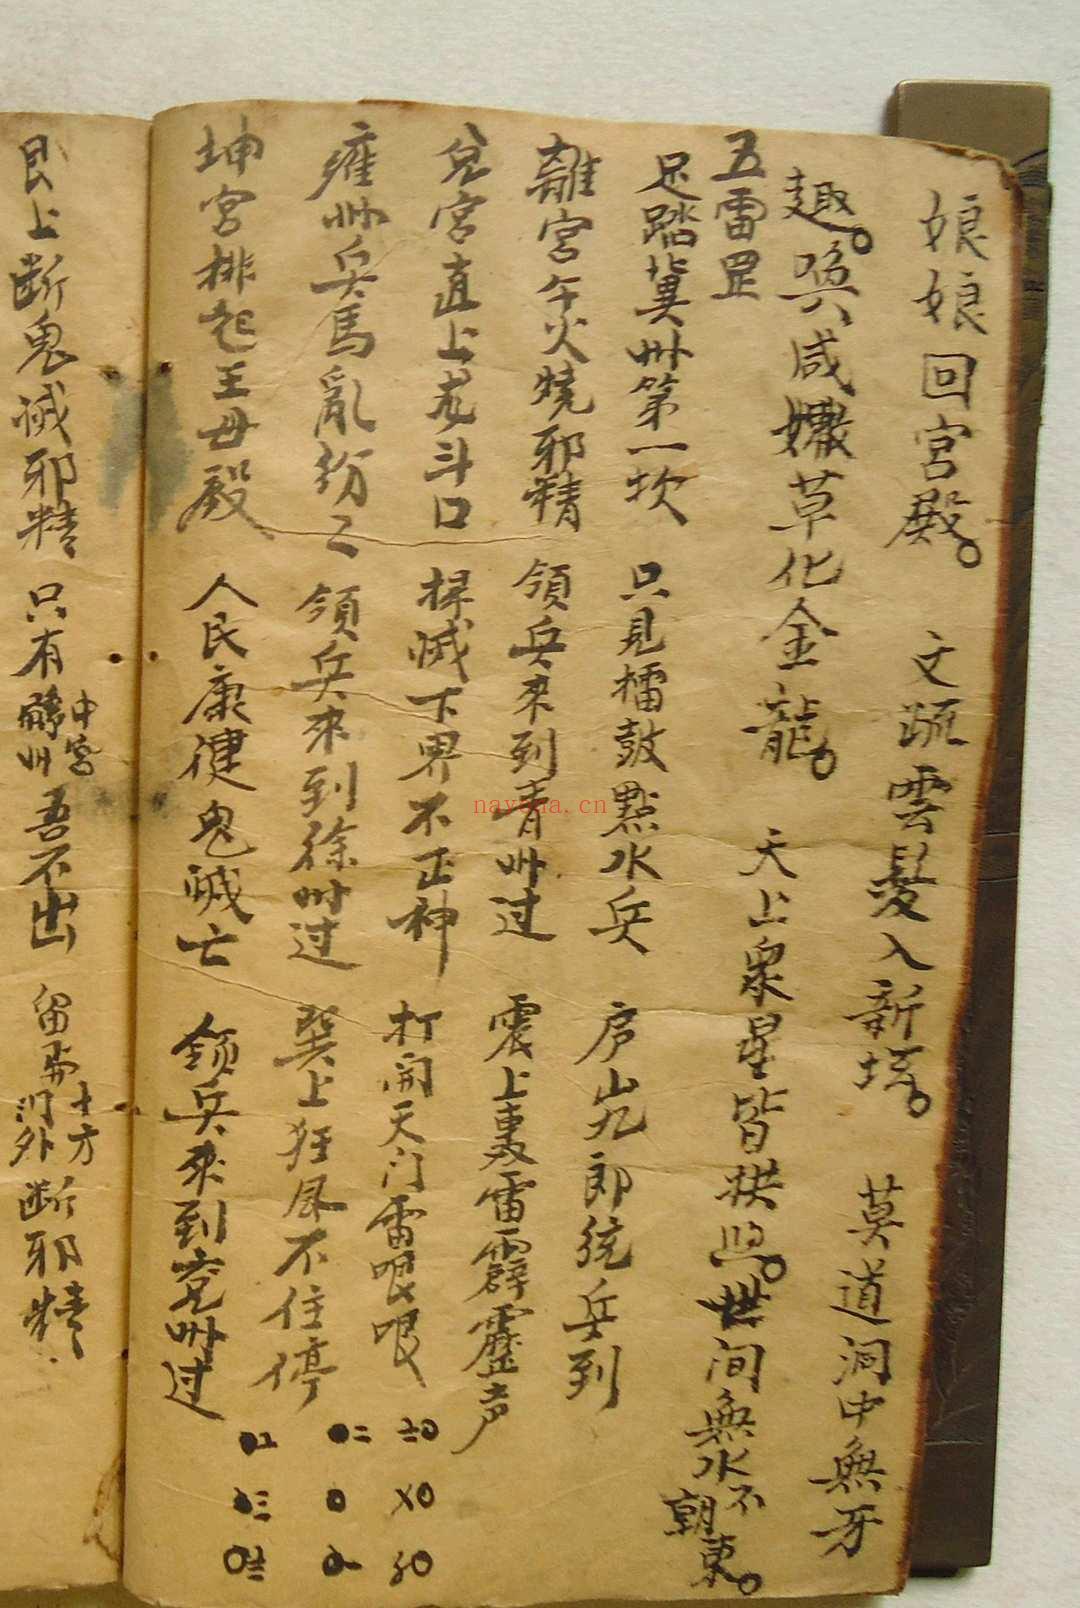 娘娘回宮殿。 文疏雲髮入新坛。 莫道洞中無牙
趣。喚咸嬾草化金龍。 天上衆星皆拱照。世间無水不朝東。
五雷罡
足踏冀州第一坎 只見擂鼓點水兵 庐山九郎统兵到
離宮午火燒邪精 領兵來到青州过 震上轰雷霹靂声
兌宮直上老斗口 掃滅下界不正神 打開天门雷哏哏
雍州兵馬亂紛〻 領兵來到徐州过 巽上狂風不住停
坤宮排起王母殿 人民康健鬼滅亡 領兵來到兖州过
艮上断鬼滅邪精 只有中宮吾不出 留 十方门外断邪精
nayona.cn